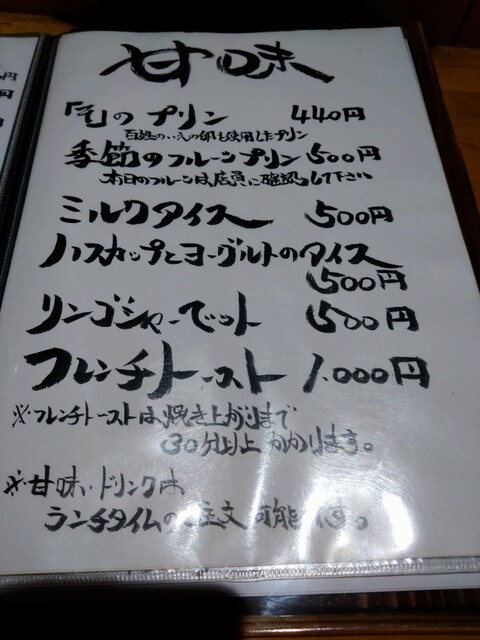 甘味
「そ」のプリン 440円
百姓のいえの卵を使用したプリン
季節のフルーツプリン 500円
本日のフルーツは店員に確認して下さい
ミルクアイス 500円
ハスカップとヨーグルトのアイス
500円
リンゴシャーベット 500円
フレンチトースト 1.000円
※フレンチトーストは、焼き上がりまで
30分以上かかります。
※甘味・ドリンクは
ランチタイムの注文可能です。
円
円
円